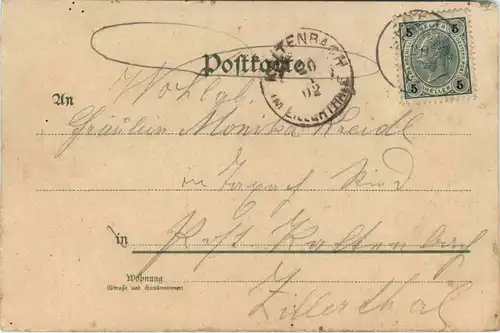 Postkarte
KALTENBACH
IM ZILLERTHALE
02
5 5
HELLER
5 5
Wohlgb.
An
Fräulein Monika Kreidl
in
in Post Kaltenbach
Wohnung
(Straße und Hausnummer)
Zillerthal